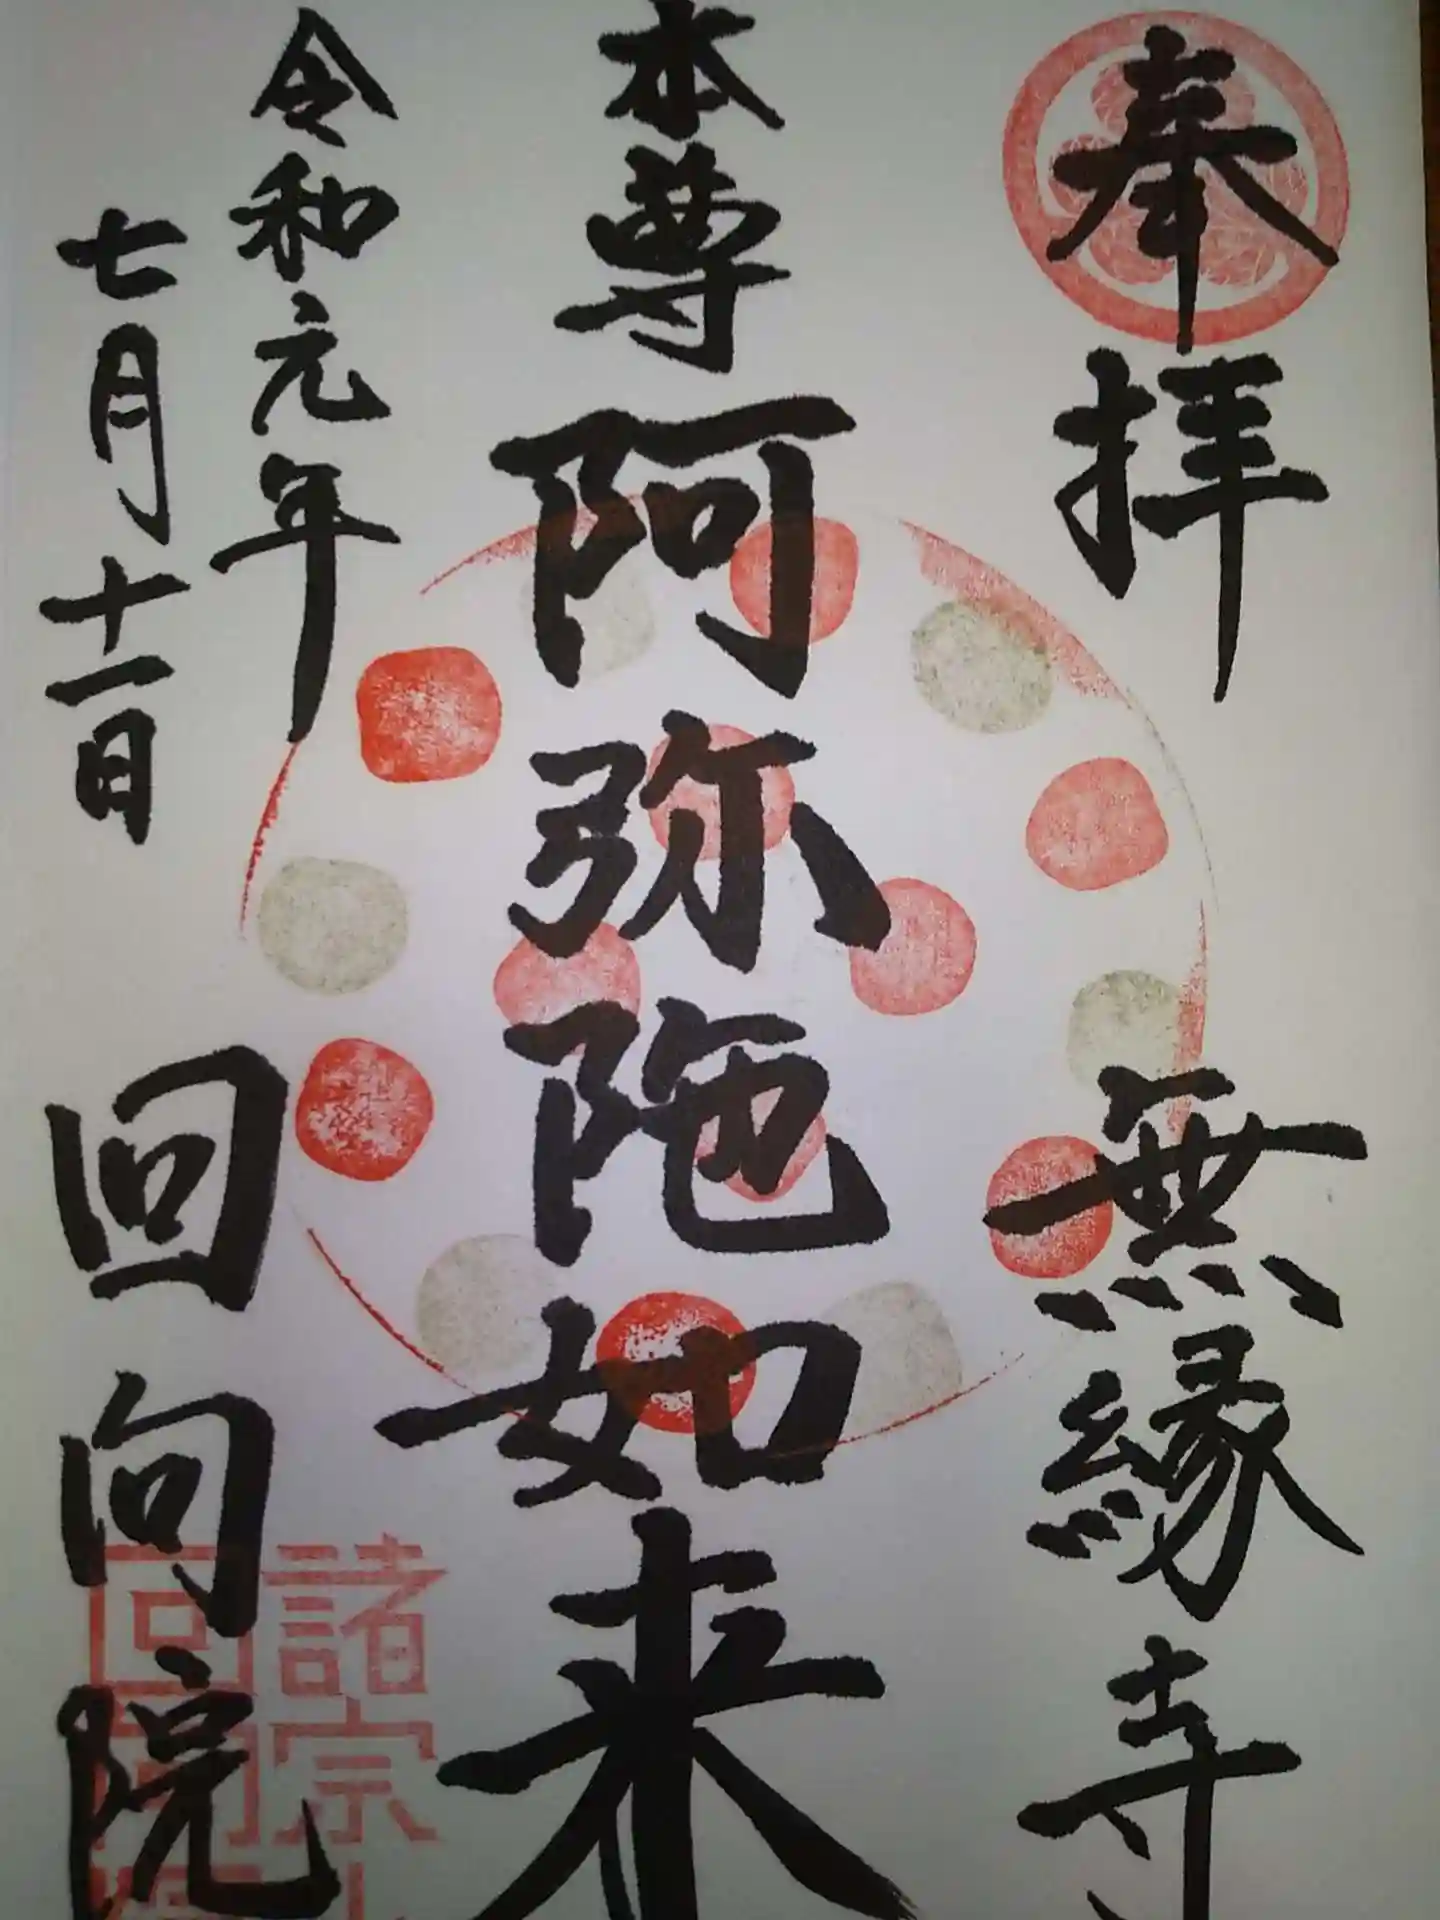 奉拝
無縁寺
本尊阿弥陀如来
令和元年
七月十一日
回向院
諸宗
回向